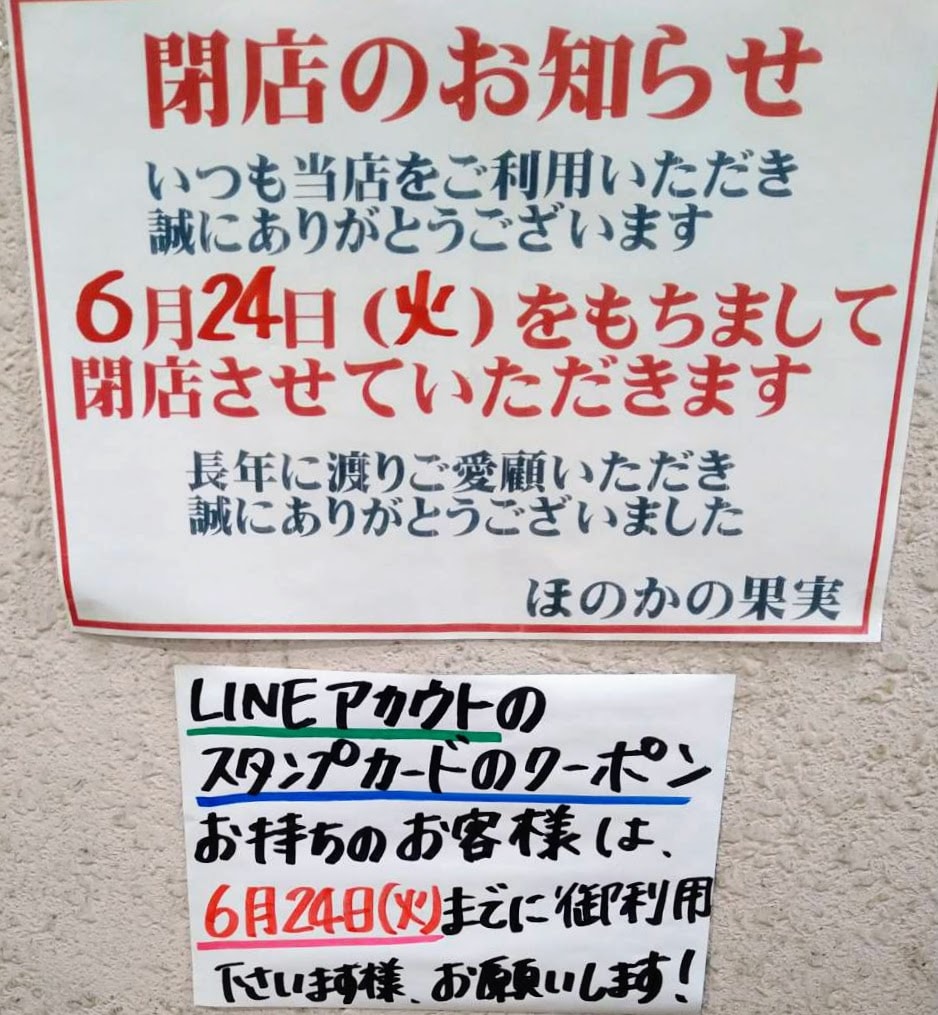 閉店のお知らせ
いつも当店をご利用いただき
誠にありがとうございます
6月24日(火)をもちまして
閉店させていただきます
長年に渡りご愛顧いただき
誠にありがとうございました
ほのかの果実
LINEアカウトの
スタンプカードのクーポン
お持ちのお客様は、
6月24日(火)までに御利用
下さいます様、お願いします!